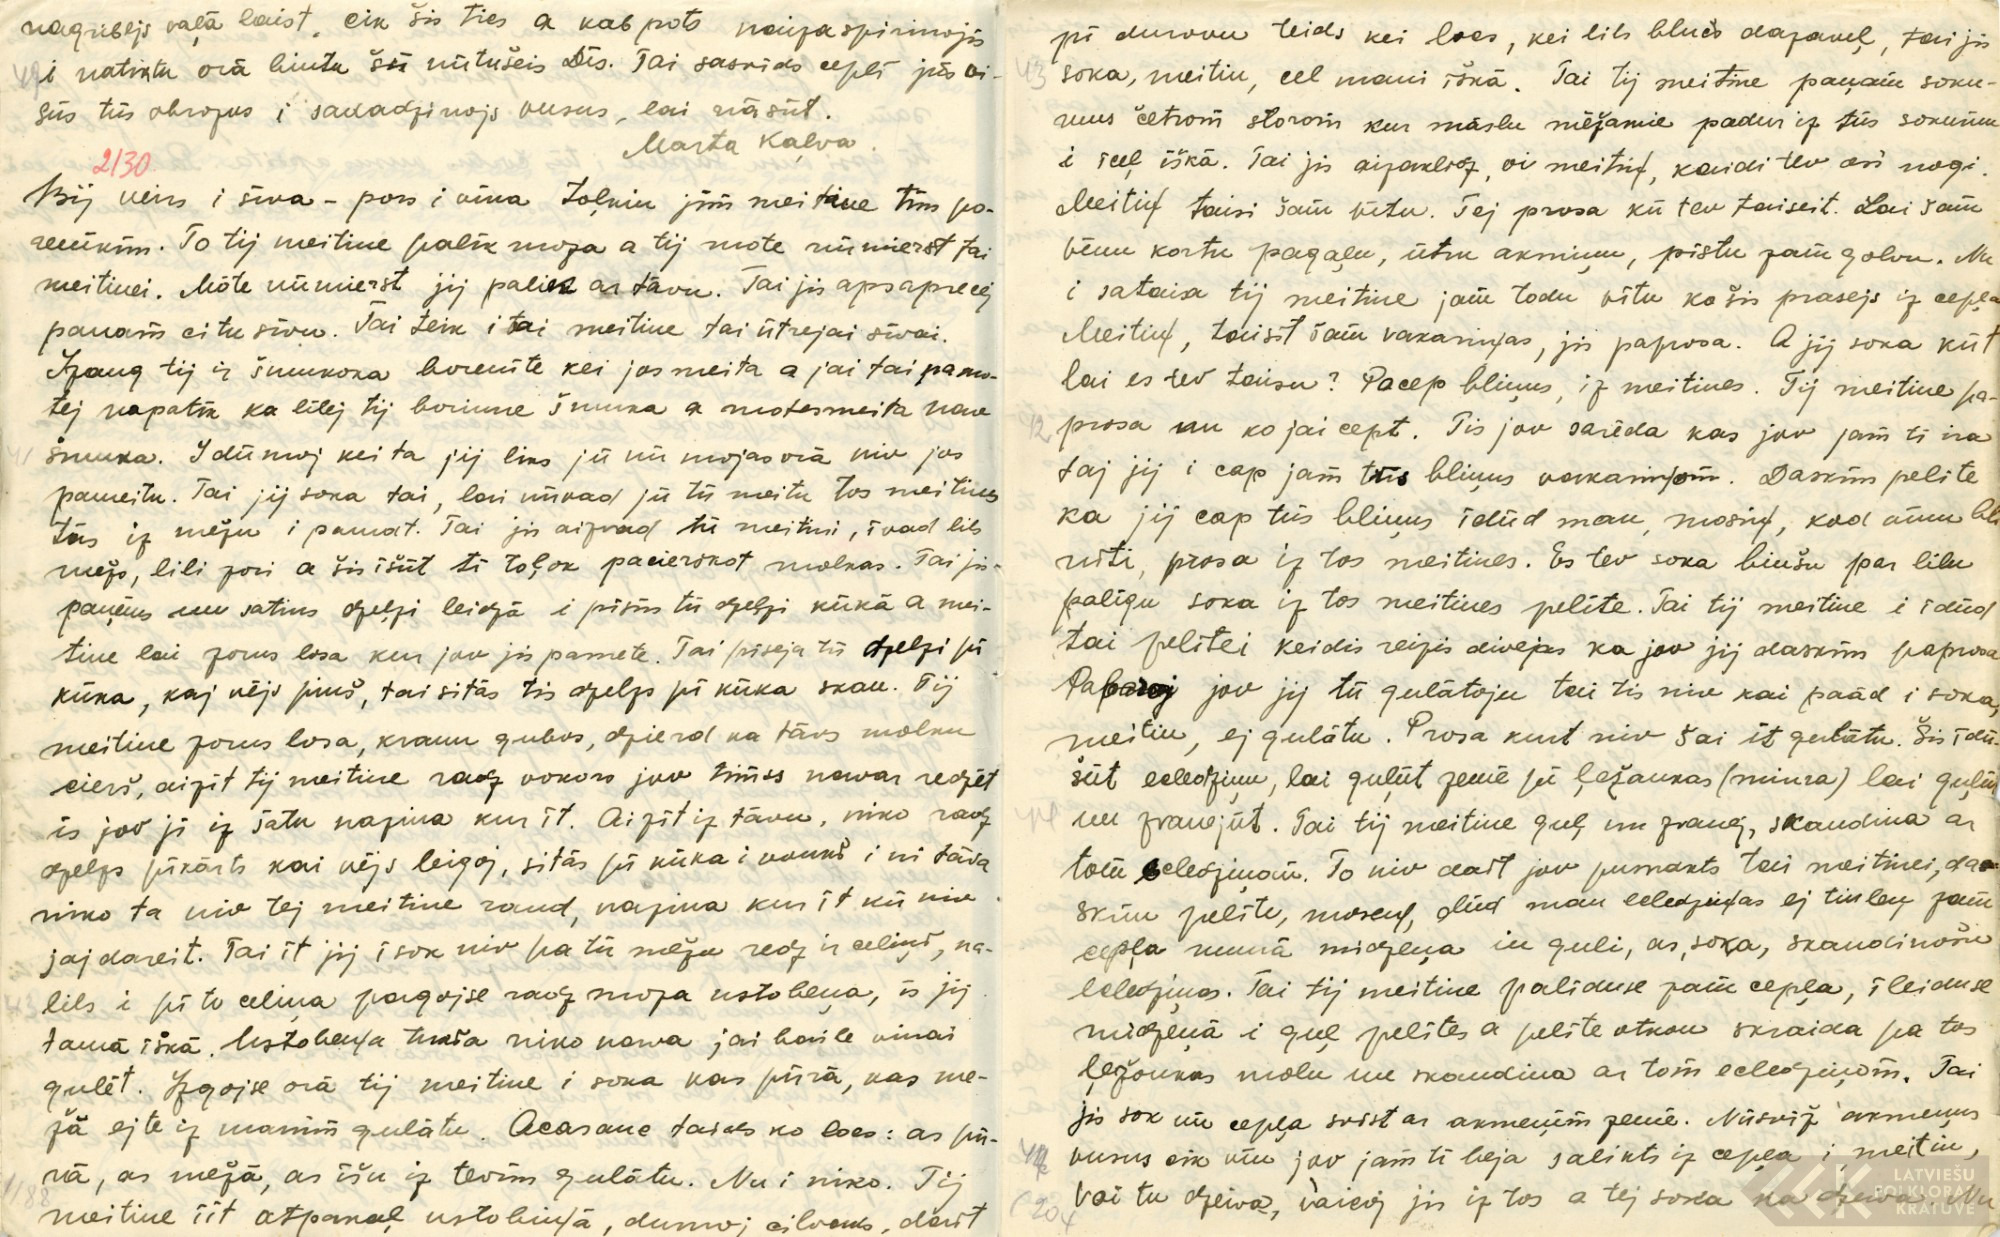 nagribejs vaļā laist, cik šis ties a kab pots
i natiktu orā biutu šū nūtušeis Dīs. Tai sasvīds ceplī jūs vi-
sūs tūs obrozus i sadadzinojs vusus, lai nāsūt.
Marta Kaļva.
2130
Bij veirs i siva - pors i vīna toļniu jim meitine tīm po-
renīkim. To tij meitine palīk moza a tij mote nūmierst tai
meitinei. Mōte nūmierst jij paliek ar tāvu. Tai jis apsaprecej
panam citu sīvu. Tai teik i tai meitine tai ūtrejai sīvai.
Izaug tij ir šmukoka borenīte kei jos meita a jai tai pamo-
tej napatīk ka lilej tij borinne šmuka a motesmeita nav
šmuka. I dūmoj kei ta jij liks jū nū mojas orā niv jos
pameitu. Tai jij soka tai, lai nūvad jū tū meitu tos meitines
tās iz mežu i pamat. Tai jis aizvad tū meitini, ivad lils
mežs, lili zori a šis īšūt ti toļok pacierskot molkas. Tai jis
paņems un satins dzeļzi leidzā i pīsīs tū dzeļzi kūkā a mei-
tine lai zorus losa kur jov jis pamete. Tai pīseja tū dzelzi pi
kūka, kaj vējs pius, tai sitās tis dzelzs pi kūka skaņ. Tij
meitine zorus losa, kraun gubos, dzierd ka tāvs molku
cierš, aizīt tij meitine radz vokors jov timss navar redzēt
is jov ji iz sātu nazina kur īt. Aizīt iz tāvu, niko radz
dzelzs pikārts kai vējs leigoj, sitās pi kūka i vouks i ni tāva
niko ta niv tej meitine raud, nazina kur īt kū niv
jaj dareit. Tai īt jij īsok niv pa tū mežu redz ir celiņš, na-
lils i pi to celiņa pagojse radz moza ustobeņa, īs jij
tamā īškā. Ustobeņa tukša niko nava jai baile vinai
gulēt. Izgojse orā tij meitine i soka kas pūrā, kas me-
žā ejte iz manim gulātu. Acasauc taids ko locs: as pū-
rā, as mežā, as īšu iz tevim gulātu. Nu i niko. Tij
meitine īit atpakaļ ustobiņā, dumoj cilvaks, darīt
pi durovu teids kei locs, kei lils blucs dazaveļ, tai jis
soka, meitiņ, cel mani īškā. Tai tij meitine paņam soku-
mus četrom storom kur māslu mēžamie padur iz tūs sokumu
i īceļ īškā. Tai jis aizavlidz, oi meitiņ, kaidi tev osi nogi.
Meitiņ taisi šam vītu. Tej prosa kū tev taiseit. Lai šam
vīnu kortu pagaļu, ūtru akmiņu, pīstu zam golvu. Nu
i sataisa tij meitine jam todu vītu ko šis prasejs iz cepļa
Meitiņ, taisīt šam vakariņas, jis paprosa. A jij soka kūt
lai es tev taisu? Pacep bliņus, iz meitines. Tij meitine pa-
prosa nu ko jai cept. Tis jov sarēda kas jov jam ti ira
taj jij i cap jam tūs bliņus vakariņom. Daskrīn pelite
ka jij cap tūs bliņus īdūd man, mosiņ, kod vīnu bli
nīti, prosa iz tos meitines. Es tev soka biušu par lilu
palīgu soka iz tos meitines pelīte. Tai tij meitine i īdūd
tai pelītei keidis reizis divejas ka jov jij daskrīn paprosa
jov jij tū gulātoju tai tis niv kai paād i soka,
meitiņ, ej gulātu. Prosa kurt niv šai īt gulātu. Šis īdū-
šūt ecledziņu, lai guļūt zemē pi ļežankas (miura) lai guļūt
un zvanejūt. Tai tij meitine guļ un zvanej, skaudina ar
tom ecledziņom. To niv dait jov pusnakts tai meitinei, da-
skrīn pelīte, moseņ, dūd man ecledziņas ej tiuleņ zam
cepļa munā midzeņa īu guli, as, soka, skaudinošu
ecledziņas. Tai tij meitine palīduse zam cepļa, īleiduse
midzeņā i guļ pelītes a pelīte otkon skraida pa tos
ļežonkas molu un skaudina ar tom ecledziņom. Tai
jis sok nu cepļa svīst ar akmeņim zemē. Nūsvīž akmeņus
vusus cik viņ jov jam ti beja salikts iz cepļa i, meitiņ,
Voi tu dzeiva, vaicoj jis iz tos a tej soka ka dzeiva. Nu
LATVIEŠU
FOLKLORAS
KRĀTUVE